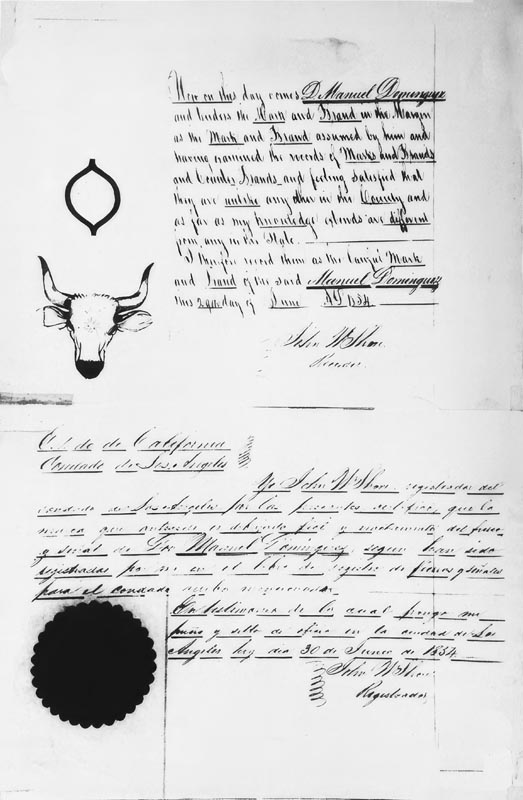 Now on this day comes D. Manuel Dominguez
and tenders the Mark and Brand in the Margin
as the Mark and Brand assumed by him and
having examined the records of Marks and Brands
and Counter Brands and feeling satisfied that
they are unlike any other in this County and
as far as my knowledge extends are different
from any in the State.
I therefore record them as the lawful Mark
and Brand of the said Manuel Dominguez
this 29th day of June AD 1854
John W Shore
Recorder
E. de California
Condado de Los Angeles
Yo John W Shore registrador del
condado de Los Angeles por las presentes certifico, que la
marca que antecede es fiel y del fierro
y señal de Don Manuel Dominguez segun han sido
registradas por mi en el libro de registro de fierros y señales
para el condado arriba mencionado.
En testimonio de lo cual pongo mi
puño y sello de oficio en la ciudad de Los
Angeles hoy dia 30 de Junio de 1854
John W Shore
Registrador